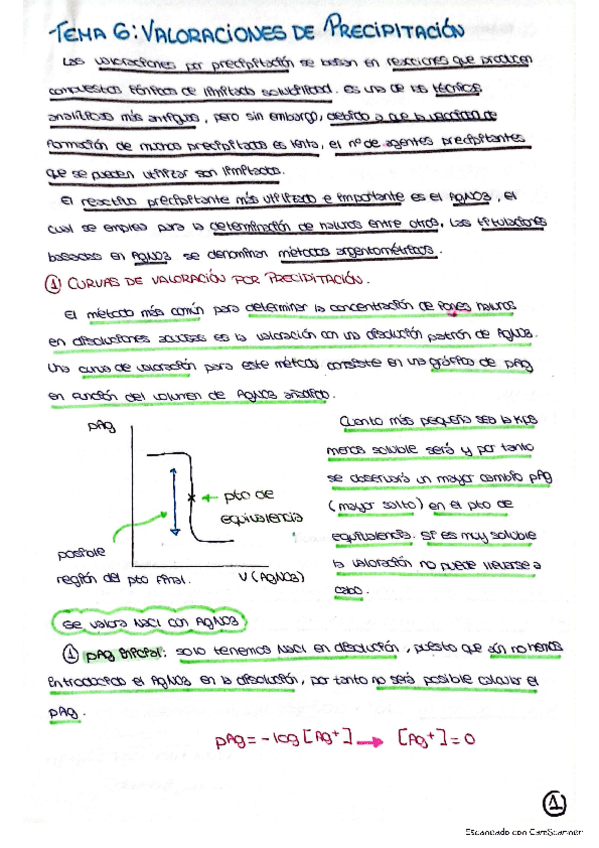 TEMA 6: VALORACIONES DE PRECIPITACIÓN
Las valoraciones por precipitación se basan en reacciones que producen
compuestos iónicos de limitada solubilidad. es una de las técnicas
analíticas más antiguas, pero sin embargo, debido a que la velocidad de
formación de muchos precipitados es lenta, el nº de agentes precipitantes
que se pueden utilizar son limitados.
El reactivo precipitante más utilizado e importante es el AgNO3, el
cual se emplea para la determinación de haluros entre otros, las titulaciones
basadas en AgNO3 se denominan métodos argentométricos.
① CURVAS DE VALORACIÓN POR PRECIPITACIÓN.
El método más común para determinar la concentración de iones haluros
en disoluciones acuosas es la valoración con una disolución patrón de AgNO3.
Una curva de valoración para este método consiste en una gráfico de pAg
en función del volumen de AgNO3 añadido.
pAg
pto de
equivalencia
posible
región del pto final.
V (AgNO3)
Cuanto más pequeña sea la Kps
menos soluble será y por tanto
se observará un mayor cambio pAg
(mayor salto) en el pto de
equivalencia. Si es muy soluble
la valoración no puede llevarse a
cabo.
Se valora NaCl con AgNO3
① pAg inicial: solo tenemos NaCl en disolución, puesto que aún no hemos
introducido el AgNO3 en la disolución, por tanto no será posible calcular el
pAg.
pAg = -log [Ag+] → [Ag+] = 0
1
Escaneado con CamScanner